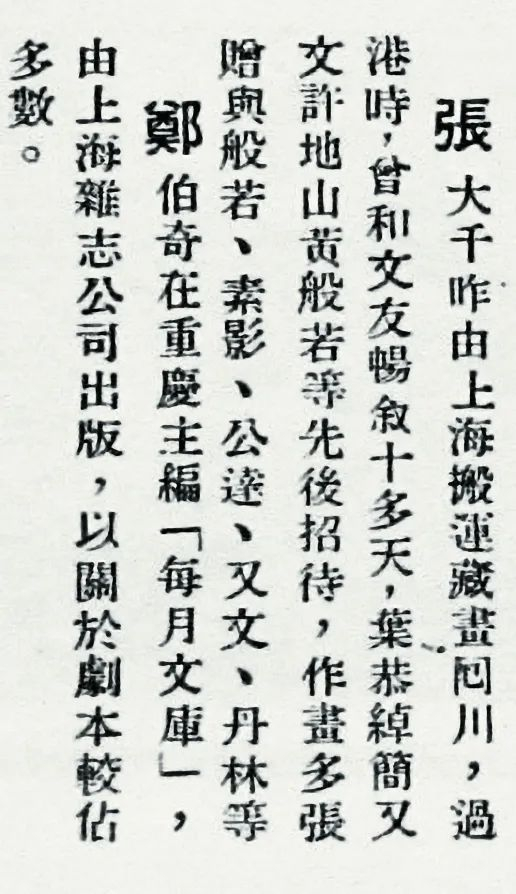 張大千昨由上海搬運藏畫囘川，過
港時，曾和文友暢叙十多天，葉恭綽簡又
文許地山黃般若等先後招待，作畫多張
贈與般若、素影、公逵、又文、丹林等
鄭伯奇在重慶主編「每月文庫」，
由上海雜志公司出版，以關於劇本較佔
多數。